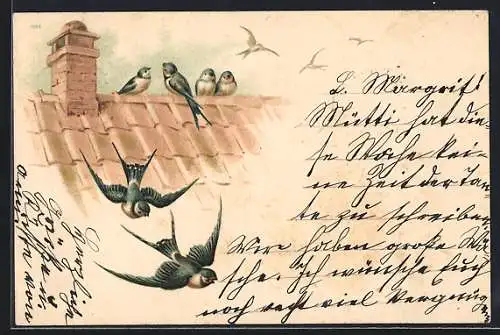 L. Margrit!
Mutti hat die-
se Woche kei-
ne Zeit der Tan-
te zu schreiben.
Wir haben große Wä-
sche. Ich wünsche Euch
noch recht viel Vergnügen
Herzlich
Grüße u.
Küsse von